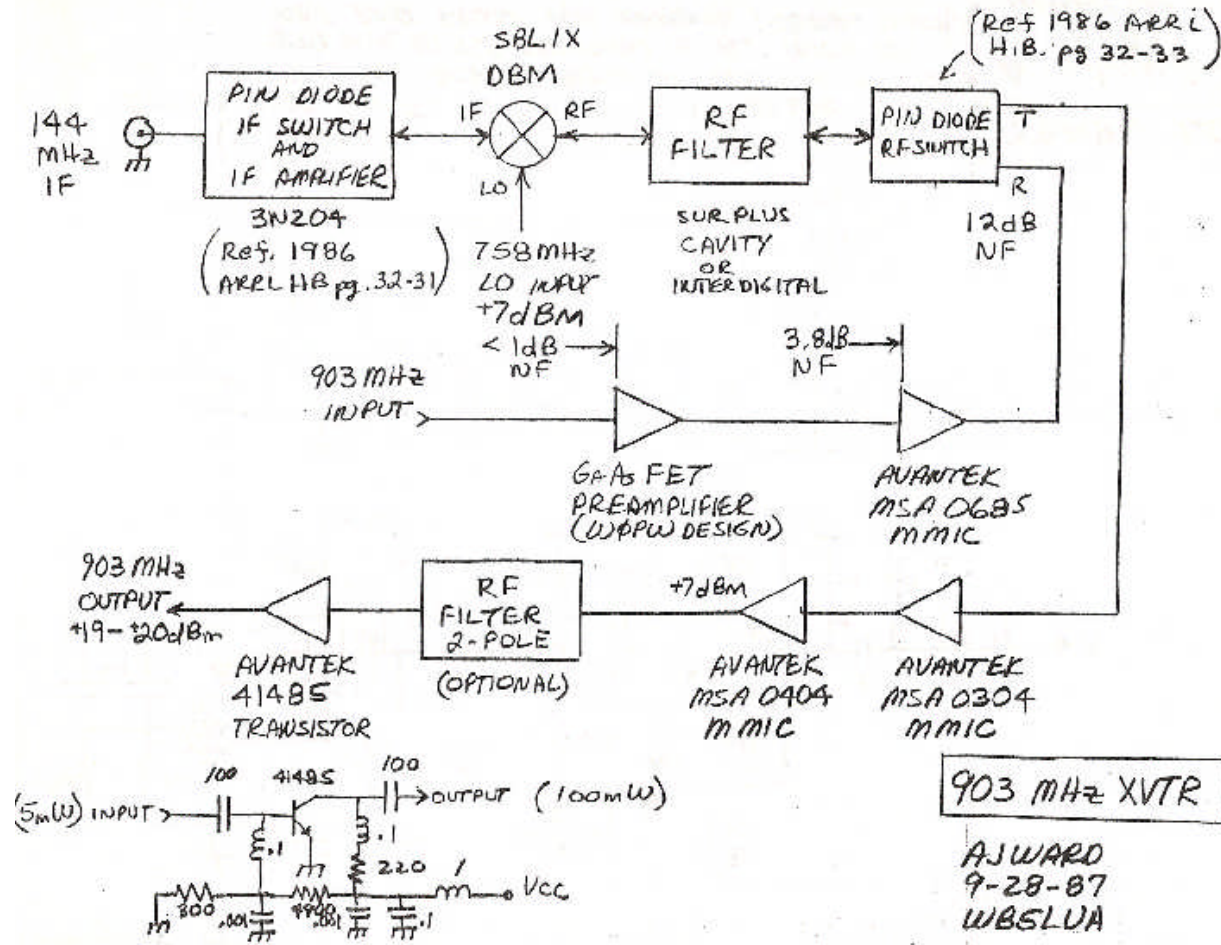 SBL1X
DBM
(Ref 1986 ARRL
H.B. pg 32-33)
144
MHz
IF
PIN DIODE
IF SWITCH
AND
IF AMPLIFIER
IF
RF
LO
RF
FILTER
PIN DIODE
RF SWITCH
T
R
3N204
(Ref. 1986
ARRL HB pg. 32-31)
758 MHz
LO INPUT
+7dBM
SURPLUS
CAVITY
OR
INTERDIGITAL
12dB
NF
< 1dB
NF
3.8dB
NF
903 MHz
INPUT
GaAs FET
PREAMPLIFIER
(WØPW DESIGN)
AVANTEK
MSA 0685
MMIC
903 MHz
OUTPUT
+19-+20dBm
RF
FILTER
2-POLE
(OPTIONAL)
+7dBm
AVANTEK
41485
TRANSISTOR
AVANTEK
MSA 0404
MMIC
AVANTEK
MSA 0304
MMIC
(5mW) INPUT
100
41485
100
OUTPUT (100mW)
.1
.1
220
300
.001
.001
.1
1
Vcc
903 MHz XVTR
AJWARD
9-28-87
WB5LUA